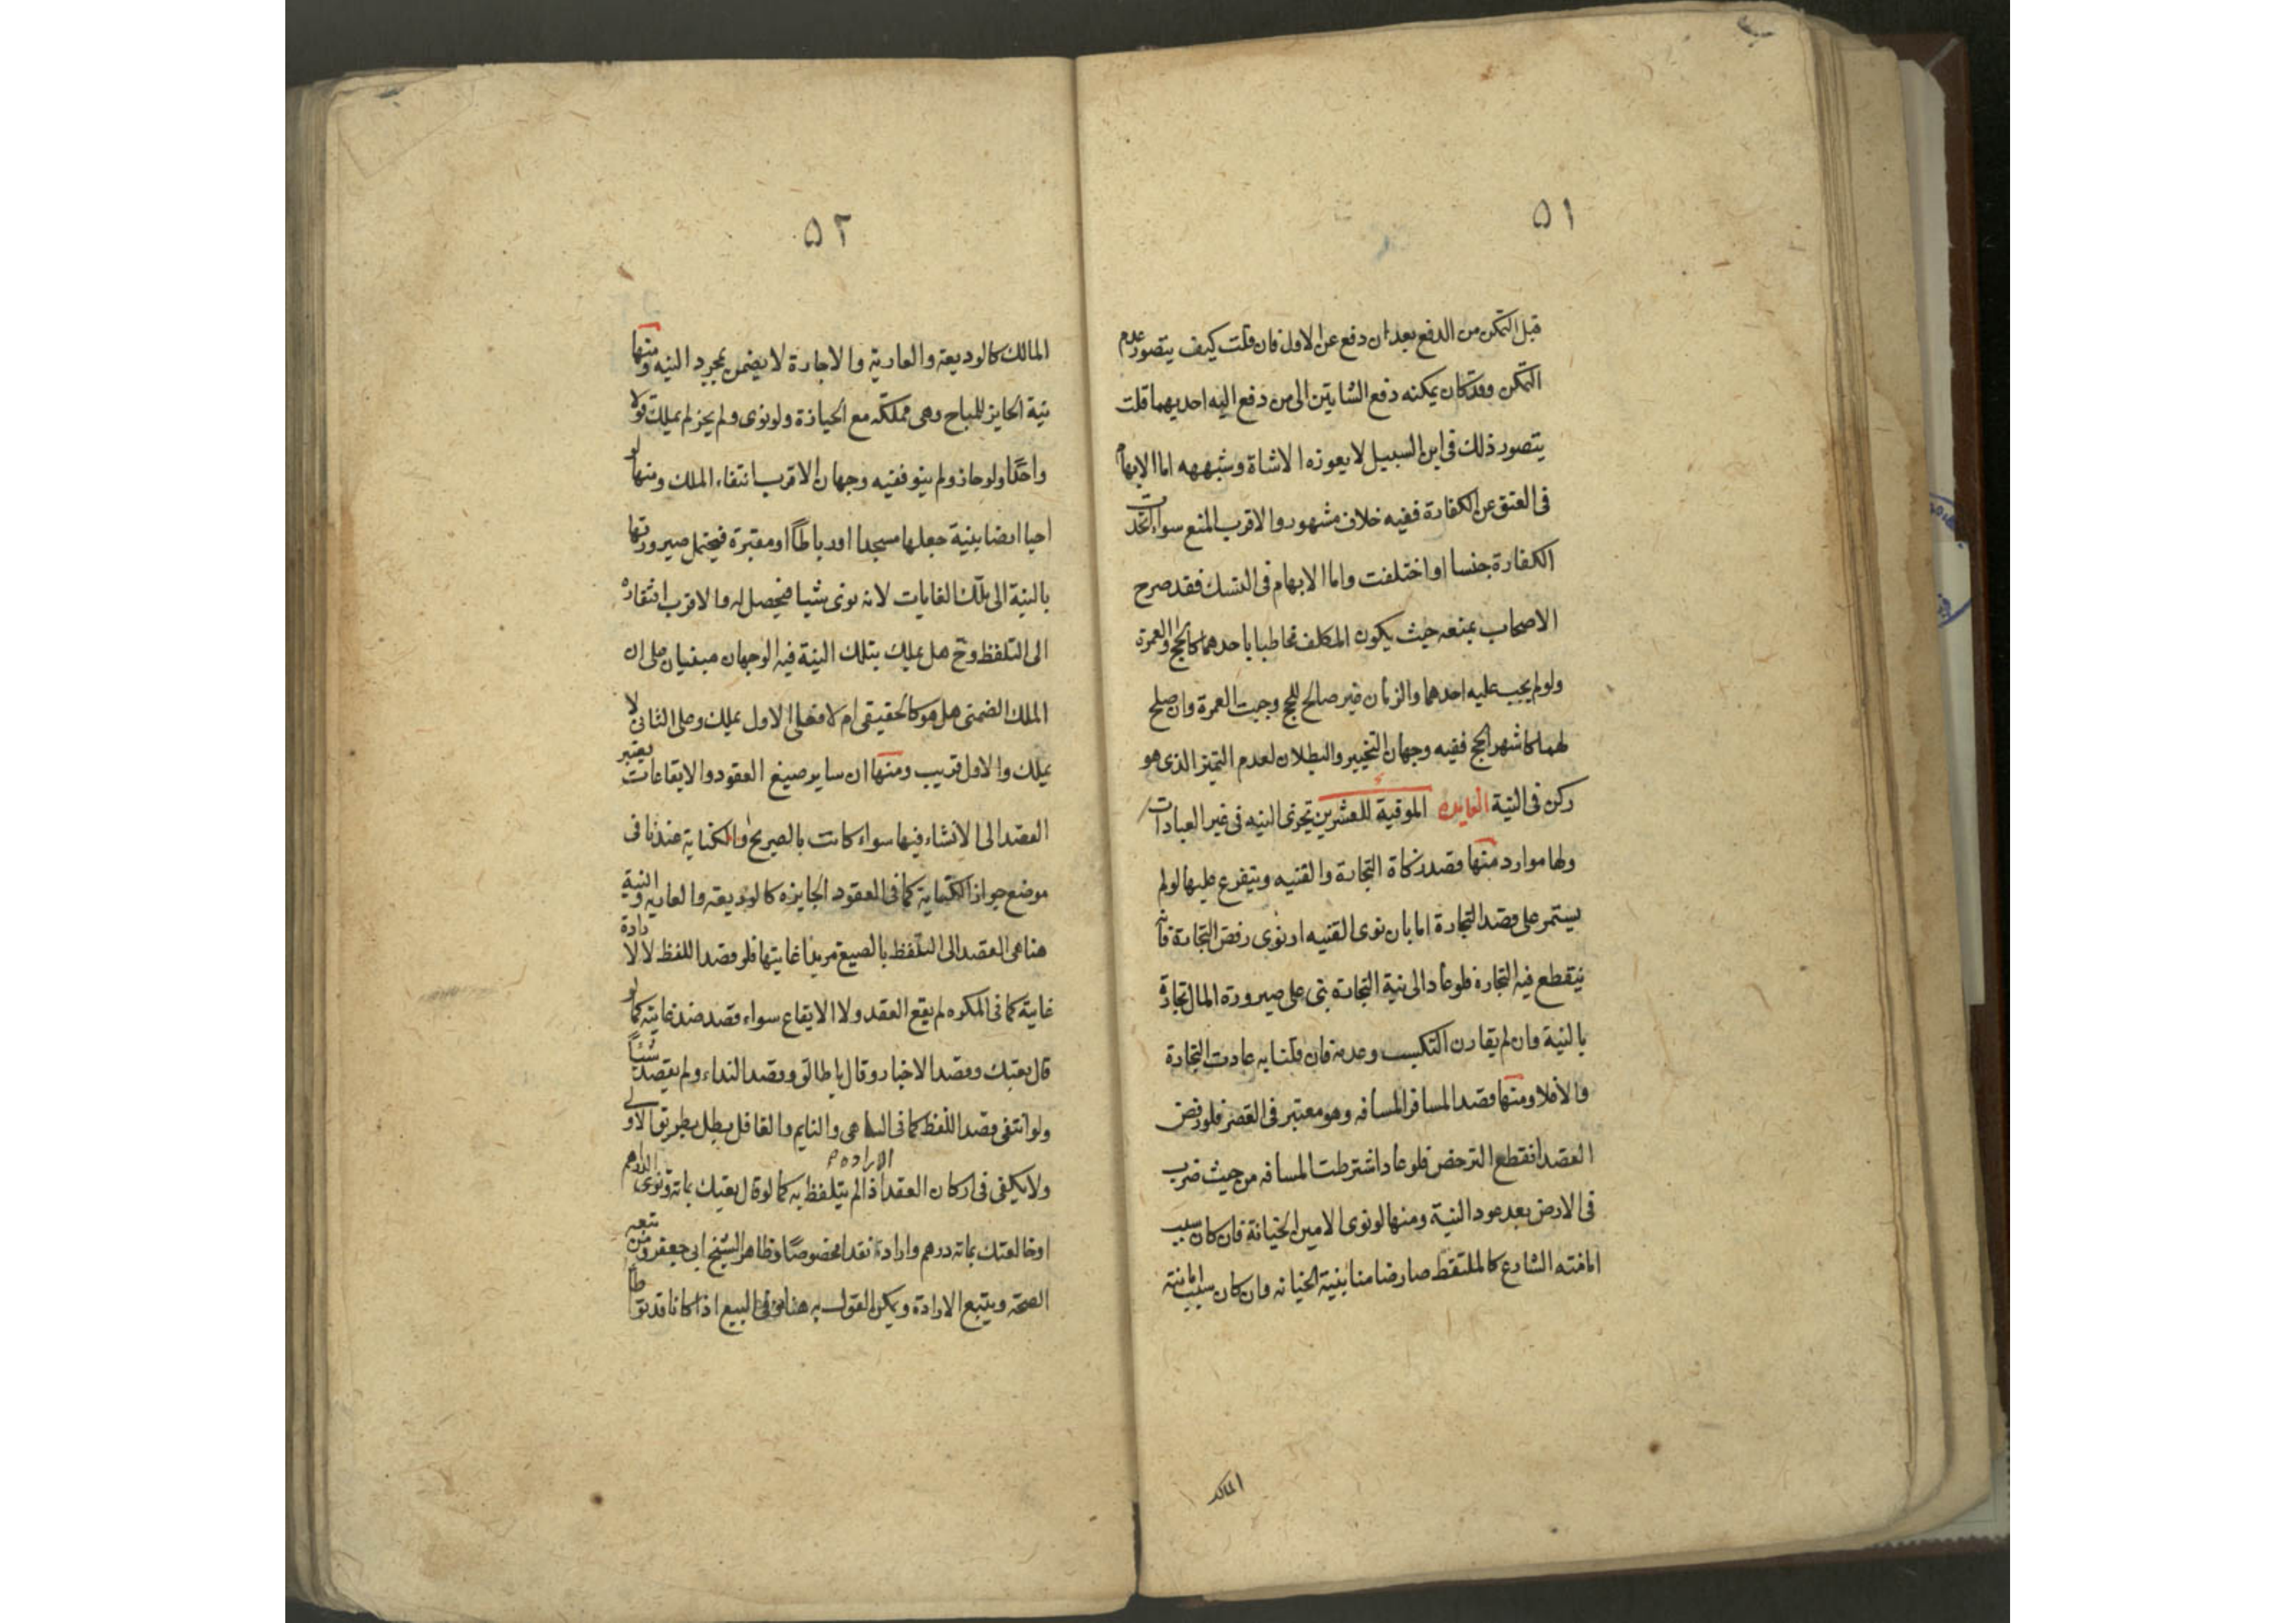 ٥١
قبل التمكن من الدفع بعد ان دفع عن الاول فان قلت كيف يتصور عدم
التمكن وقد كان يمكنه دفع الشاتين الى من دفع اليه احديهما قلت
يتصور ذلك فى ابن السبيل لا يعوزه الا شاة وشبهه اما الابهام
فى العتق عن الكفارة ففيه خلاف مشهور والاقرب المنع سواء اتحدت
الكفارة جنسا او اختلفت واما الابهام فى النسك فقد صرح
الاصحاب بمنعه حيث يكون المكلف مخاطبا باحدهما كالحج والعمرة
ولو لم يجب عليه احدهما والزمان غير صالح للحج وجبت العمرة وان صلح
لهما كاشهر الحج ففيه وجهان التخيير والبطلان لعدم التميز الذى هو
ركن فى النية الفايده الموفية للعشرين تجزى النيه فى غير العبادات
ولها موارد منها قصد زكاة التجارة والقنيه ويتفرع عليها لو لم
يستمر على قصد التجارة اما بان نوى القنيه او نوى رفض التجارة فانه
ينقطع فيه التجارة فلو عاد الى نية التجارة بنى على صيرورة المال تجارة
بالنية وان لم يقارن التكسب وعدمه فان قلنا به عادت التجارة
والا فلا ومنها قصد المسافر المسافه وهو معتبر فى القصر فلو رفض
القصد انقطع الترخص فلو عاد اشترطت المسافه من حيث ضرب
فى الارض بعد عود النية ومنها لو نوى الامين الخيانة فان كان سبب
امانته الشارع كالملتقط صار ضامنا بنية الخيانه وان كان سبب امانته
المالك
٥٢
المالك كالوديعة والعارية والاجارة لا يضمن بمجرد النيه ومنها
نية الحايز للمباح وهى مملكه مع الحيازة ولو نوى ولم يحز لم يملك قولا
واحدا ولو حاز ولم ينو ففيه وجهان الاقرب انتفاء الملك ومنها لو
احيا ارضا بنية جعلها مسجدا او رباطًا او مقبرة فيحتمل صيرورتها
بالنية الى تلك الغايات لانه نوى شيا فيحصل له والاقرب افتقاره
الى التلفظ وح هل يملك بتلك النية فيه الوجهان مبنيان على ان
الملك الضمنى هل هو كالحقيقى ام لا فعلى الاول يملك وعلى الثانى لا
يملك والاول قريب ومنها ان ساير صيغ العقود والايقاعات يعتبر
القصد الى الانشاء فيها سواء كانت بالصريح او الكناية عندنا فى
موضع جواز الكناية كما فى العقود الجايزه كالوديعه والعاريه والنية
هنا هى القصد الى التلفظ بالصيغ مريدا غايتها فلو قصد اللفظ لا لارادة
غايته كما فى المكره لم يقع العقد ولا الايقاع سواء قصد ضد غايته كما لو
قال بعتك وقصد الاخبار وقال يا طالق وقصد النداء ولم يقصد شيئًا
ولو انتفى قصد اللفظ كما فى الساهى والنايم والغافل بطل بطريق الاولى
ولا يكفى فى اركان العقد الاراده اذا لم يتلفظ به كما لو قال بعتك بماته ونوى الدراهم
او خالعتك بماته درهم وارادة نقدا مخصوصًا وظاهر الشيخ ابى جعفر ومن تبعه
الصحة ويتبع الارادة ويمكن القول به هنا وفى البيع اذا كانا قد تواطا